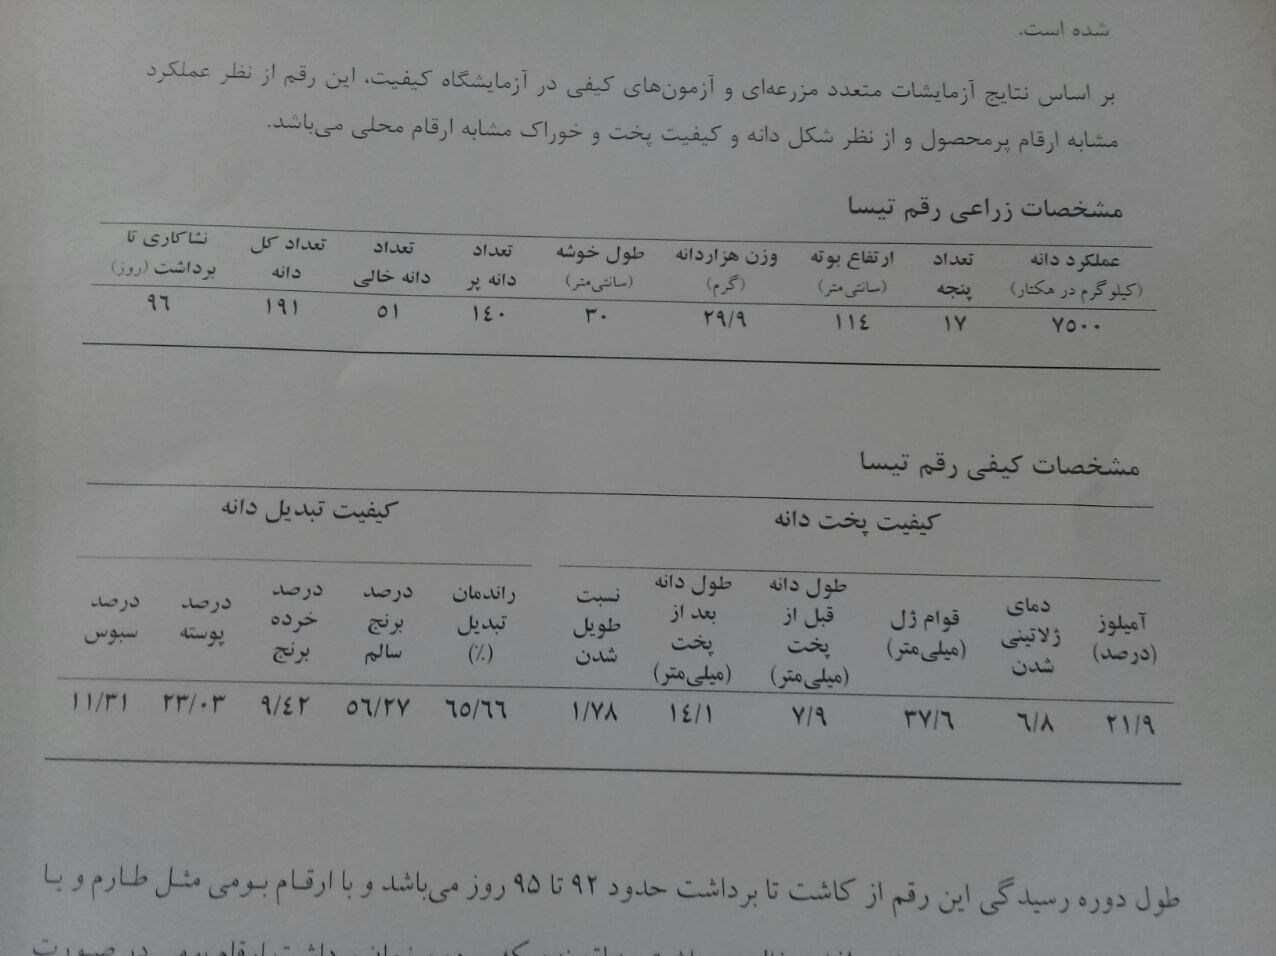 شده است.
بر اساس نتایج آزمایشات متعدد مزرعه‌ای و آزمون‌های کیفی در آزمایشگاه کیفیت، این رقم از نظر عملکرد
مشابه ارقام پرمحصول و از نظر شکل دانه و کیفیت پخت و خوراک مشابه ارقام محلی می‌باشد.
مشخصات زراعی رقم تیسا
عملکرد دانه تعداد ارتفاع بوته وزن هزاردانه طول خوشه تعداد تعداد تعداد کل نشاکاری تا
(کیلوگرم در هکتار) پنجه (سانتی‌متر) (گرم) (سانتی‌متر) دانه پر دانه خالی دانه برداشت (روز)
۷۵۰۰ ۱۷ ۱۱٤ ۲۹/۹ ۳۰ ۱٤۰ ۵۱ ۱۹۱ ۹٦
مشخصات کیفی رقم تیسا
کیفیت پخت دانه کیفیت تبدیل دانه
آمیلوز (درصد) دمای ژلاتینی شدن قوام ژل (میلی‌متر) طول دانه قبل از پخت (میلی‌متر) طول دانه بعد از پخت (میلی‌متر) نسبت طویل شدن راندمان تبدیل (٪) درصد برنج سالم درصد خرده برنج درصد پوسته درصد سبوس
۲۱/۹ ٦/۸ ۳۷/٦ ۷/۹ ۱٤/۱ ۱/۷۸ ٦۵/٦٦ ۵٦/۲۷ ۹/٤۲ ۲۳/۰۳ ۱۱/۳۱
طول دوره رسیدگی این رقم از کاشت تا برداشت حدود ۹۲ تا ۹۵ روز می‌باشد و با ارقام بومی مثل طارم و یا